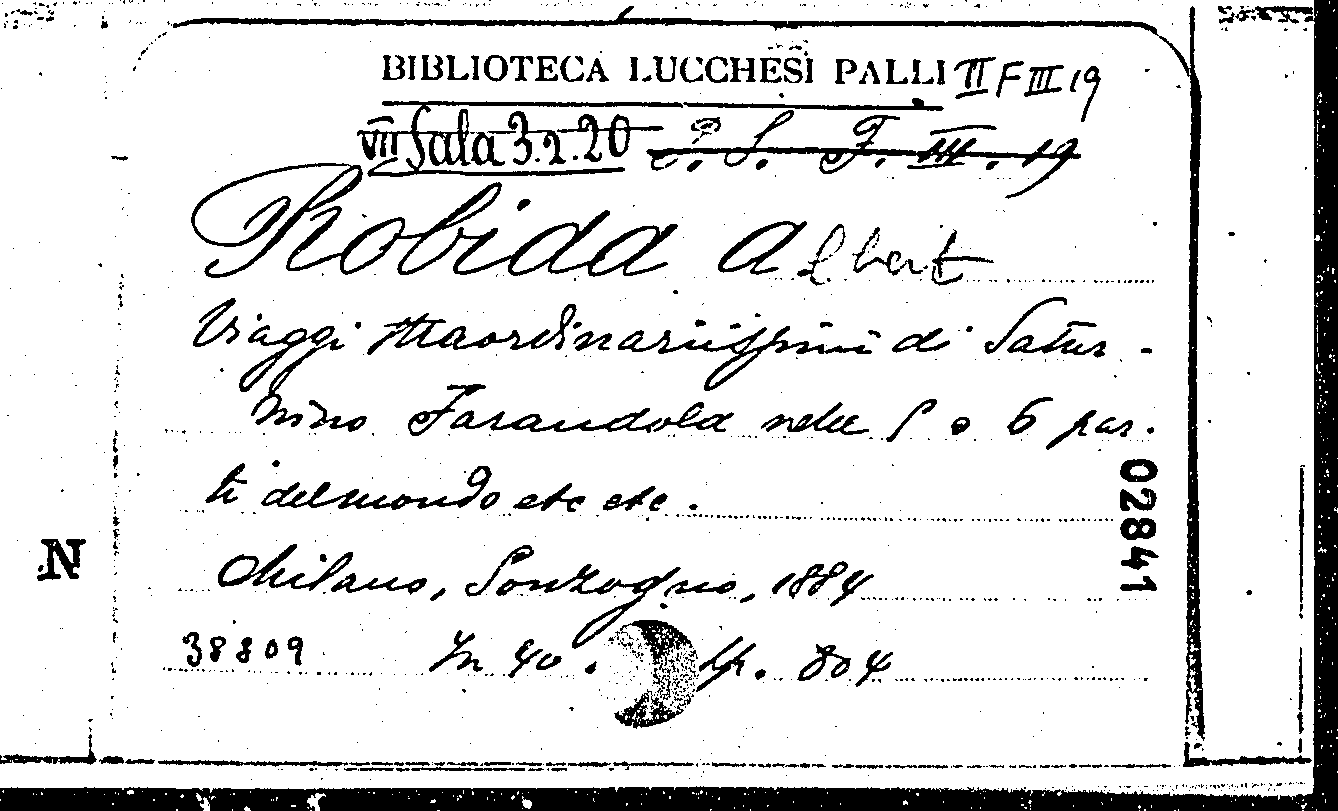 BIBLIOTECA LUCCHESI PALLI II F III 19
VII Sala 3.2.20 S. F. III. 19
Robida Albert
Viaggi straordinariissimi di Satur-
nino Farandola nelle 5 o 6 par-
ti del mondo etc etc.
Milano, Sonzogno, 1884
38809 In 4o. pp. 804
02841
N